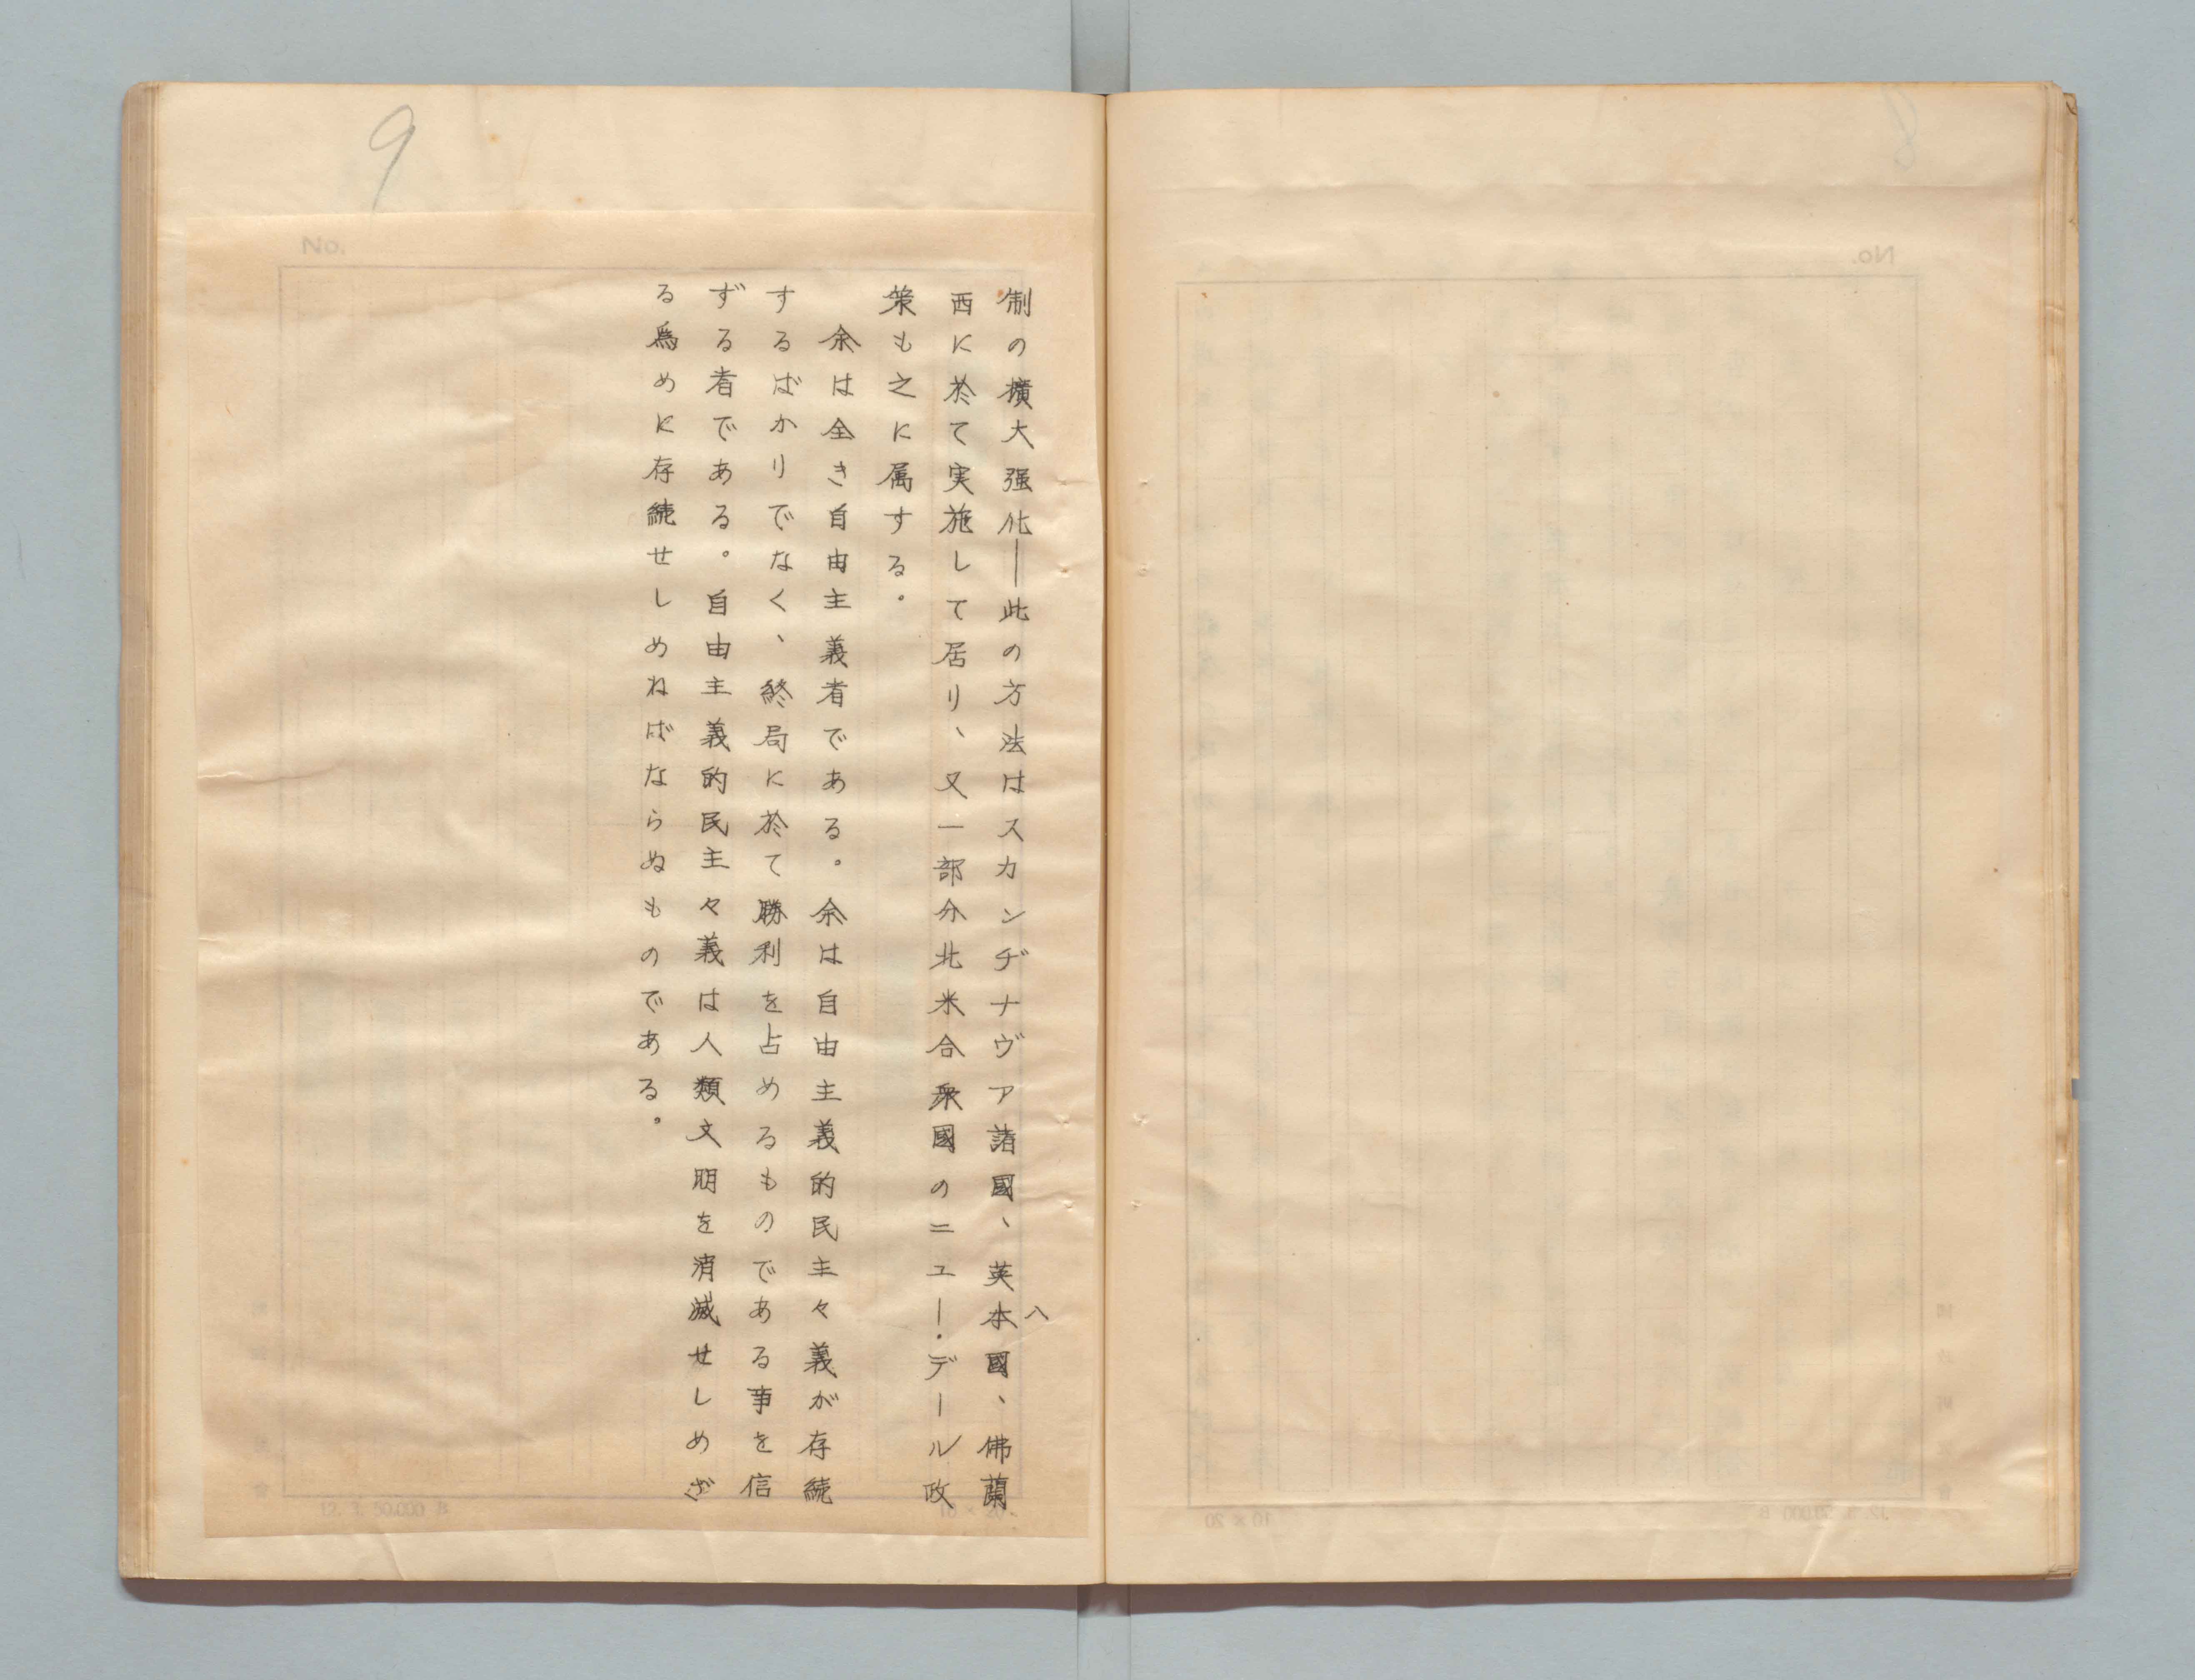 9
No.
制の擴大强化―此の方法はスカンヂナヴア諸國、英本國、佛蘭
西に於て実施して居り、又一部分北米合衆國のニユー・デール政
策も之に属する。
余は全き自由主義者である。余は自由主義的民主々義が存続
するばかりでなく、終局に於て勝利を占めるものである事を信
ずる者である。自由主義的民主々義は人類文明を消滅せしめざ
る爲めに存続せしめねばならぬものである。
八
10 × 20